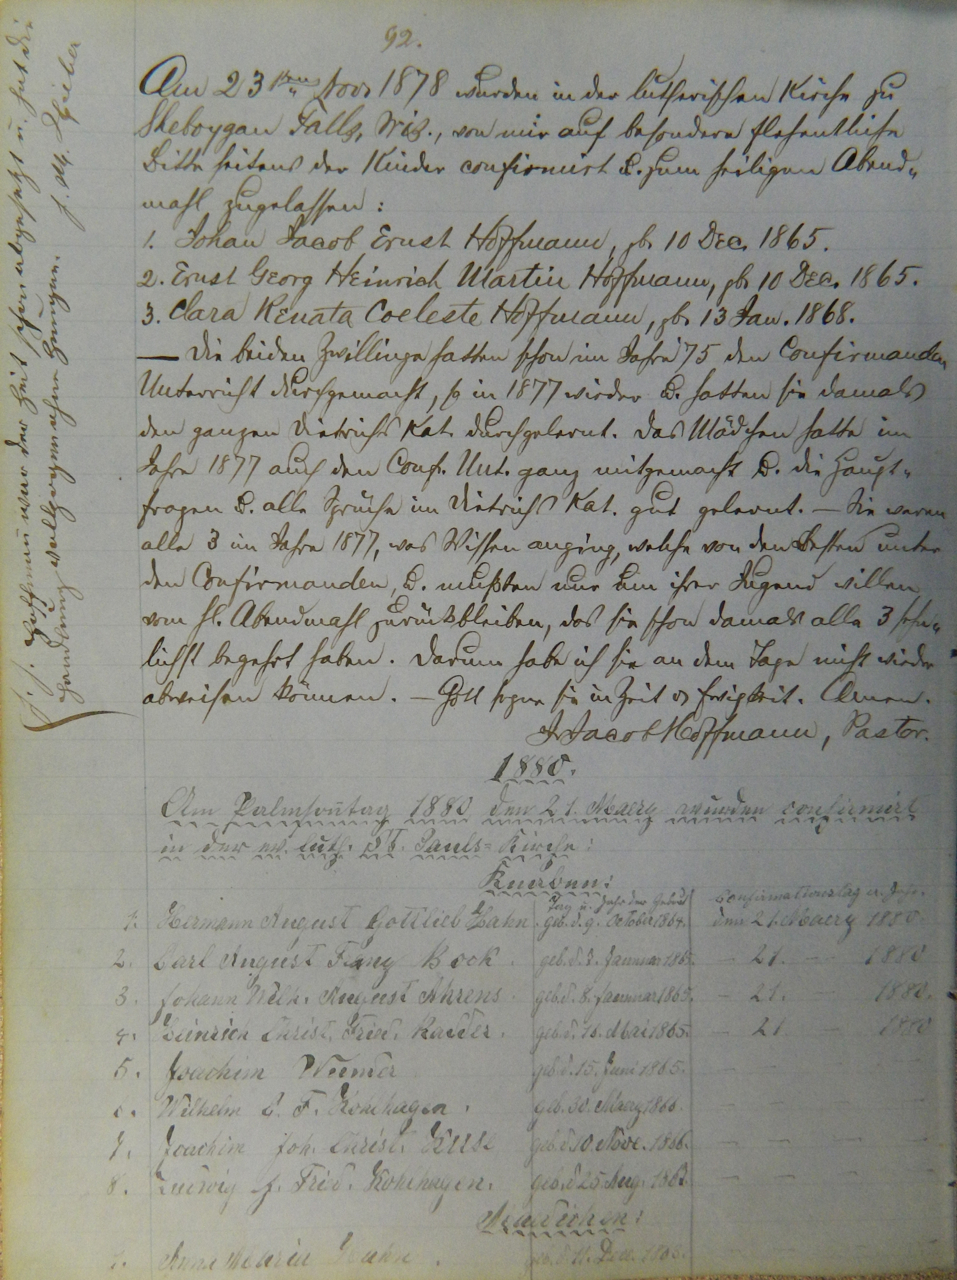 92.
Am 23sten Nov. 1878 wurden in der lutherischen Kirche zu
Sheboygan Falls, Wis., von mir auf besondere flehentliche
Bitte seitens der Kinder confirmirt u. zum heiligen Abend-
mahl zugelassen:
1. Johan Jacob Ernst Hoffmann, gb. 10 Dec. 1865.
2. Ernst Georg Heinrich Martin Hoffmann, gb. 10 Dec. 1865.
3. Clara Renata Coeleste Hoffmann, gb. 13 Jan. 1868.
— Die beiden Zwillinge hatten schon im Jahre '75 den Confirmanden
Unterricht durchgemacht, so in 1877 wieder u. hatten sie damals
den ganzen Dietrichs Kat. durchgelernt. Das Mädchen hatte im
Jahre 1877 auch den Conf. Unt. ganz mitgemacht u. die Haupt-
fragen u. alle Sprüche im Dietrichs Kat. gut gelernt. — Sie waren
alle 3 im Jahre 1877, was Wissen anging, welche von den Besten unter
den Confirmanden, u. mußten nur um ihrer Jugend willen
vom hl. Abendmahl zurückbleiben, das sie schon damals alle 3 sehn-
lichst begehrt haben. Darum habe ich sie an dem Tage nicht wieder
abweisen können. — Gott segne sie in Zeit u Ewigkeit. Amen.
Jacob Hoffmann, Pastor.
Hoffmann war der Zeit schon abgesetzt u. hat die
Handlung vollzogen
1880.
Am Palmsontag 1880 den 21. Maerz wurden confirmirt
in der ev. luth. St. Pauls-Kirche:
Knaben:
Tag u. Jahr der Geburt Confirmationstag u. Jahr.
1. Hermann August Gottlieb Hahn geb. d. 9. October 1864. den 21. Maerz 1880.
2. Carl August Franz Bock. geb. d. 3. Januar 1865. — 21. — 1880
3. Johann Wilh. August Ahrens. geb. d. 8. Januar 1865. — 21. — 1880.
4. Heinrich Christ. Fried. geb. d. 16. Mai 1865. — 21 — 1880
5. Joachim geb. d. 15. Juni 1865. — — —
6. Wilhelm F. Kohlhagen. geb. 30. Maerz 1866. — — —
7. Joachim Joh. Christ. geb. d. 10 Nove. 1866. — — —
8. Ludwig J. Fried. Kohlhagen. geb. d. 25 Aug. — — —
Maedchen:
1. Anna Maria geb. d. 11. Dec.